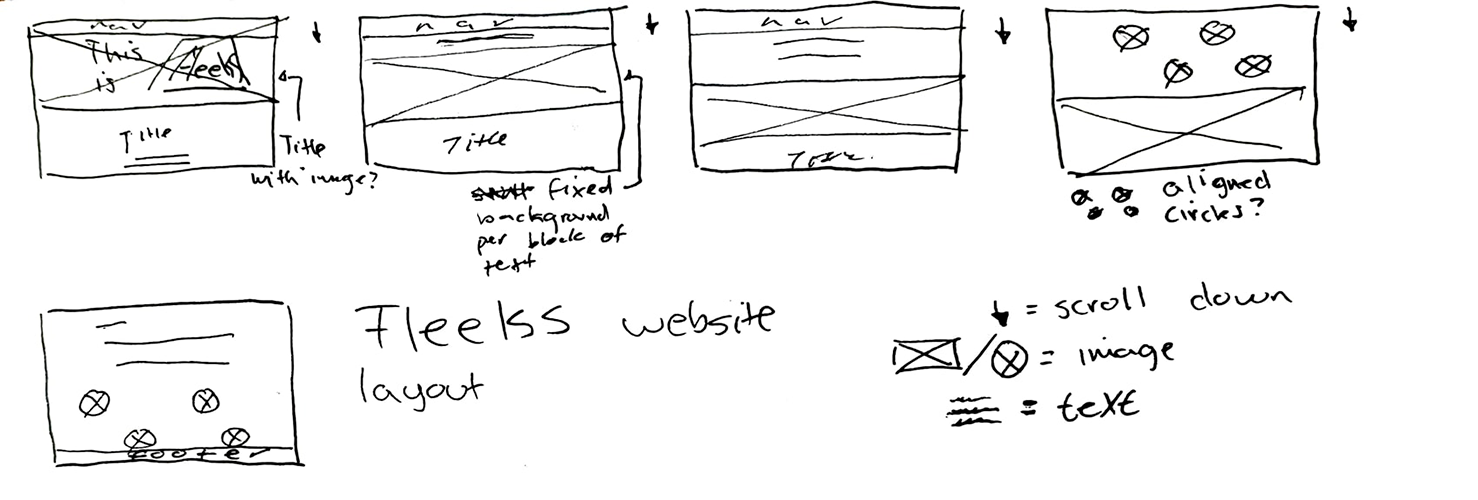 nav
This
is
Fleeks
Title
Title
with image?
nav
Title
fixed
background
per block of
text
nav
aligned
circles?
footer
Fleekss website
layout
= scroll down
/ = image
= text